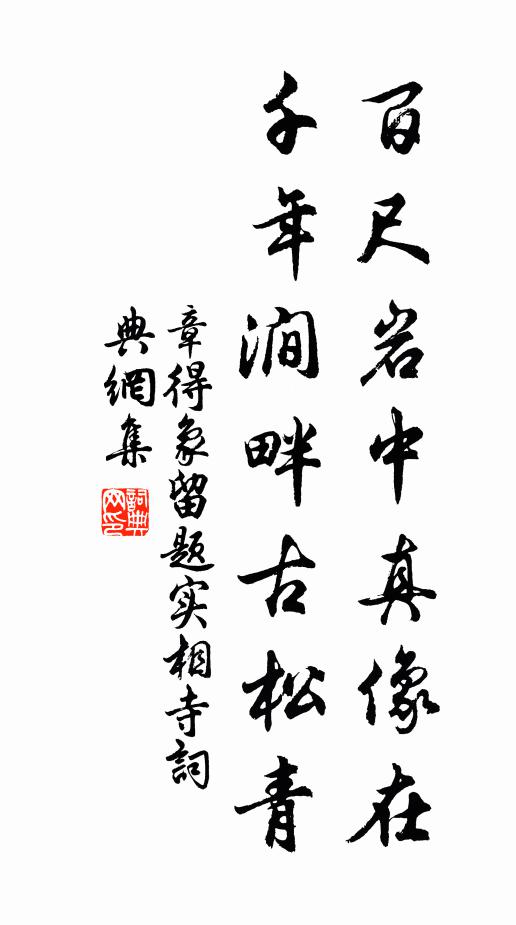 百尺岩中真像在
千年澗畔古松青
章得象留题实相寺詞
典網集
詞典網印